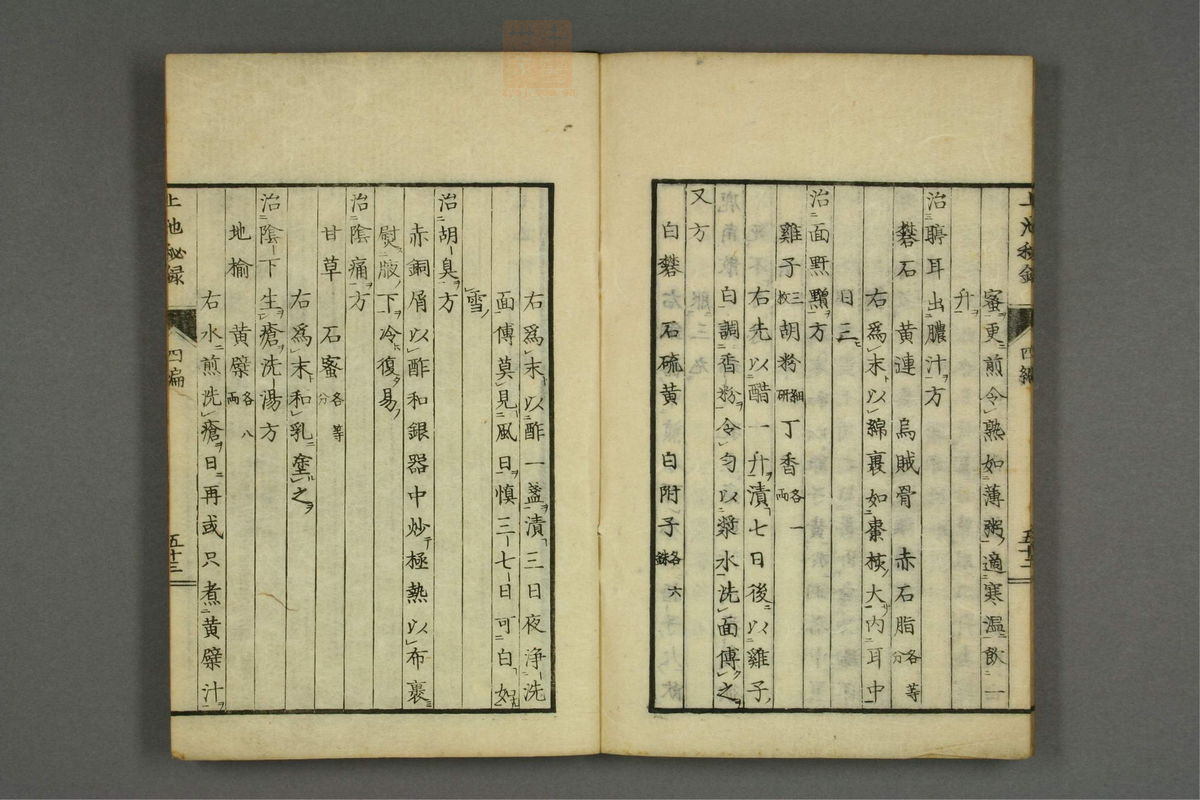 蜜更煎令熟如薄粥適寒溫飲一
升
治聤耳出膿汁方
礬石 黃連 烏賊骨 赤石脂各等分
右爲末以綿裹如棗核大內耳中
日三
治面䵟䵴方
雞子三枚 胡粉細研 丁香各一兩
右先以醋一升漬七日後以雞子
白調香粉令勻以漿水洗面傅之
又方
白礬 石硫黃 白附子各六銖
右爲末以酢一盞漬三日夜淨洗
面傅莫見風日慎三七日可白如
雪
治胡臭方
赤銅屑以酢和銀器中炒極熱以布裹
熨腋下冷復易
治陰痛方
甘草 石蜜各等分
右爲末和乳塗之
治陰下生瘡洗湯方
地榆 黃檗各八兩
右水煎洗瘡日再或只煮黃檗汁
上池秘録
四編
五十三